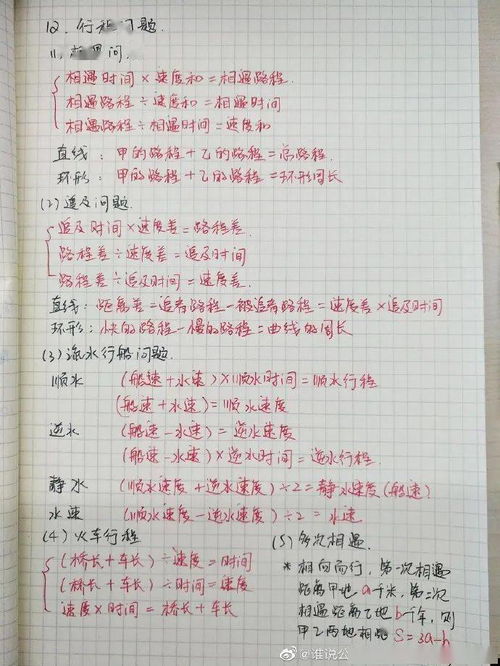 12. 行程问题.
(1) 相遇问
相遇时间 × 速度和 = 相遇路程.
相遇路程 ÷ 速度和 = 相遇时间
相遇路程 ÷ 相遇时间 = 速度和
直线: 甲的路程 + 乙的路程 = 总路程.
环形: 甲的路程 + 乙的路程 = 环形周长
(2) 追及问题.
追及时间 × 速度差 = 路程差.
路程差 ÷ 速度差 = 追及时间
路程差 ÷ 追及时间 = 速度差.
直线: 距离差 = 追者路程 - 被追者路程 = 速度差 × 追及时间
环形: 快的路程 - 慢的路程 = 曲线的周长
(3) 流水行船问题.
顺水 (船速 + 水速) × 顺水时间 = 顺水行程
(船速 + 水速) = 顺水速度
逆水 (船速 - 水速) = 逆水速度
(船速 - 水速) × 逆水时间 = 逆水行程.
静水 (顺水速度 + 逆水速度) ÷ 2 = 静水速度 (船速)
水速 (顺水速度 - 逆水速度) ÷ 2 = 水速
(4) 火车行程
(桥长 + 车长) ÷ 速度 = 时间
(桥长 + 车长) ÷ 时间 = 速度
速度 × 时间 = 桥长 + 车长
(5) 多次相遇.
* 相向而行, 第一次相遇
距离甲地 a 千米, 第二次
相遇距离乙地 b 千米, 则
甲乙两地相距 S = 3a-b
@谁说公